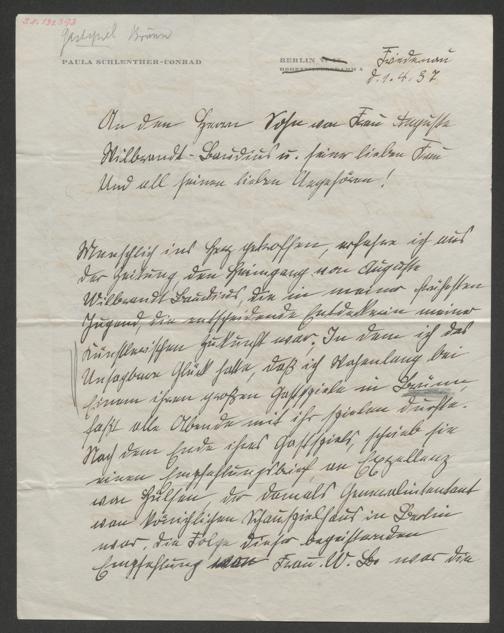 Gastspiel Brünn
PAULA SCHLENTHER-CONRAD
BERLIN
Friedenau
d. 1. 4. 37
An den Herrn Sohn von Frau Auguste
Wilbrandt-Baudius u. seine lieben Frau
Und all seinen lieben Angehören!
Menschlich ins Herz getroffen, erfahre ich aus
der Zeitung den Heimgang von Auguste
Wilbrandt Baudius, die in meiner frühesten
Jugend die entscheidende Entdeckerin meiner
künstlerischen Zukunft war. In dem ich das
Unsagbare Glück hatte, daß ich Wochenlang bei
Einem ihren großen Gastspiele in Brünn
fast alle Abende mit ihr spielen durfte.
Nach dem Ende ihres Gastspiels, schrieb sie
einen Empfehlungsbrief an Exzellenz
von Hülsen, der damals Generalintentant
vom königlichen Schauspielhaus in Berlin
war, die Folge dieser begeisternden
Empfehlung von Frau W. B. war die